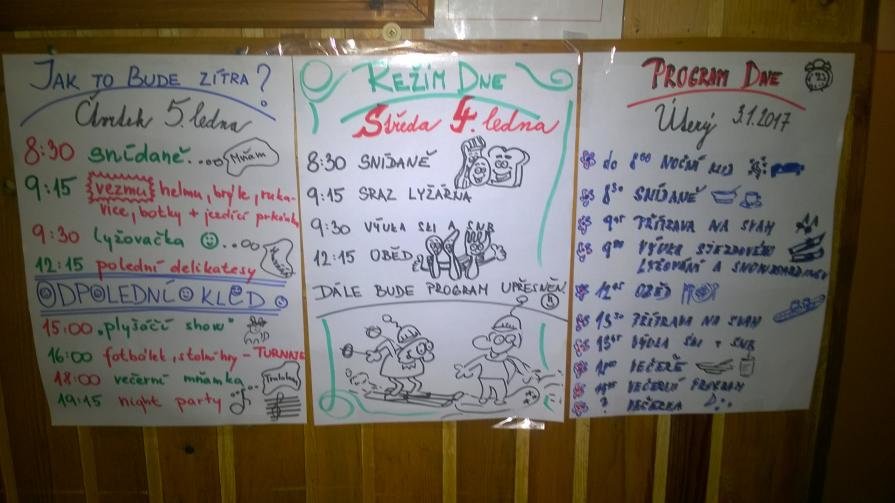 JAK TO BUDE ZÍTRA?
Čtvrtek 5. ledna
8:30 snídaně...
Mňam
9:15 vezmu helmu, brýle, ruka-
vice, botky + jezdící prkénka
9:30 lyžovačka
12:15 polední delikatesy
ODPOLEDNÍ KLID
15:00 „plyšáčí show"
16:00 fotbálek, stolní hry - TURNAJE
18:00 večerní mňamka
19:15 night party
REŽIM DNE
Středa 4. ledna
8:30 SNÍDANĚ
9:15 SRAZ LYŽÁRNA
9:30 VÝUKA SKI A SNB
12:15 OBĚD
DÁLE BUDE PROGRAM UPŘESNĚN
PROGRAM DNE
Úterý 3.1.2017
do 8:00 NOČNÍ KLID
8:30 SNÍDANĚ
PŘÍPRAVA NA SVAH
VÝUKA SJEZDOVÉHO
LYŽOVÁNÍ A SNOWBOARDINGU
OBĚD
PŘÍPRAVA NA SVAH
VÝUKA SKI + SNB
VEČEŘE
VEČERNÍ PROGRAM
? VEČERKA